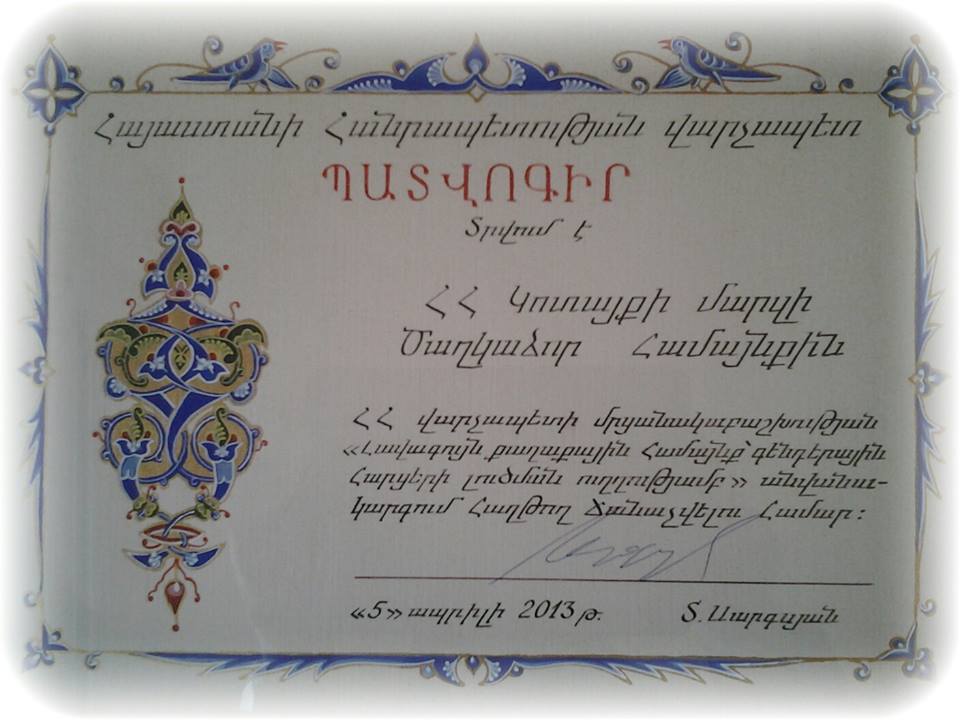 Հայաստանի Հանրապետության վարչապետ
ՊԱՏՎՈԳԻՐ
Տրվում է
ՀՀ Կոտայքի մարզի
Ծաղկաձոր Համայնքին
ՀՀ վարչապետի մրցանակաբաշխության
«Լավագույն քաղաքային Համայնք՝ գենդերային
Հարցերի լուծման ուղղությամբ» անվանա-
կարգում Հաղթող ճանաչվելու Համար:
«5» ապրիլի 2013 թ.
Տ. Սարգսյան